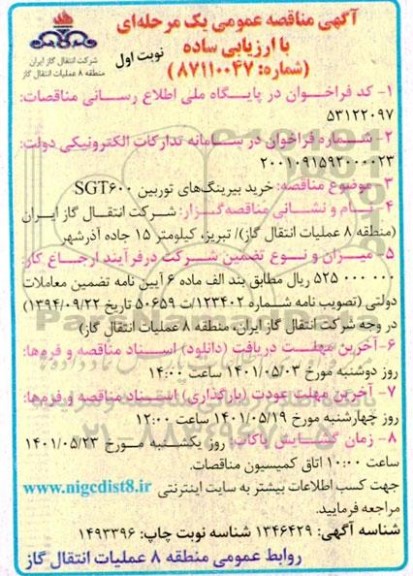 آگهی مناقصه عمومی یک مرحله‌ای
با ارزیابی ساده
(شماره: ۸۷۱۱۰۰۴۷)
نوبت اول
شرکت انتقال گاز ایران
منطقه ۸ عملیات انتقال گاز
۱- کد فراخوان در پایگاه ملی اطلاع رسانی مناقصات:
۵۳۱۲۲۰۹۷
۲- شماره فراخوان در سامانه تدارکات الکترونیکی دولت:
۲۰۰۱۰۹۱۵۹۲۰۰۰۰۲۳
۳- موضوع مناقصه: خرید بیرینگ‌های توربین SGT۶۰۰
۴- نام و نشانی مناقصه‌گزار: شرکت انتقال گاز ایران
(منطقه ۸ عملیات انتقال گاز)/ تبریز، کیلومتر ۱۵ جاده آذرشهر
۵- میزان و نوع تضمین شرکت در فرآیند ارجاع کار:
۵۲۵ ۰۰۰ ۰۰۰ ریال مطابق بند الف ماده ۶ آیین نامه تضمین معاملات
دولتی (تصویب نامه شماره ۱۲۳۴۰۲/ت ۵۰۶۵۹ تاریخ ۱۳۹۴/۰۹/۲۲)
در وجه شرکت انتقال گاز ایران، منطقه ۸ عملیات انتقال گاز)
۶- آخرین مهلت دریافت (دانلود) اسناد مناقصه و فرم‌ها:
روز دوشنبه مورخ ۱۴۰۱/۰۵/۰۳ ساعت ۱۴:۰۰
۷- آخرین مهلت عودت (بارگذاری) اسناد مناقصه و فرم‌ها:
روز چهارشنبه مورخ ۱۴۰۱/۰۵/۱۹ ساعت ۱۲:۰۰
۸- زمان گشایش پاکات: روز یکشنبه مورخ ۱۴۰۱/۰۵/۲۳
ساعت ۱۰:۰۰ اتاق کمیسیون مناقصات.
جهت کسب اطلاعات بیشتر به سایت اینترنتی www.nigcdist8.ir
مراجعه فرمایید.
شناسه آگهی: ۱۳۴۶۴۲۹ شناسه نوبت چاپ: ۱۴۹۳۳۹۶
روابط عمومی منطقه ۸ عملیات انتقال گاز